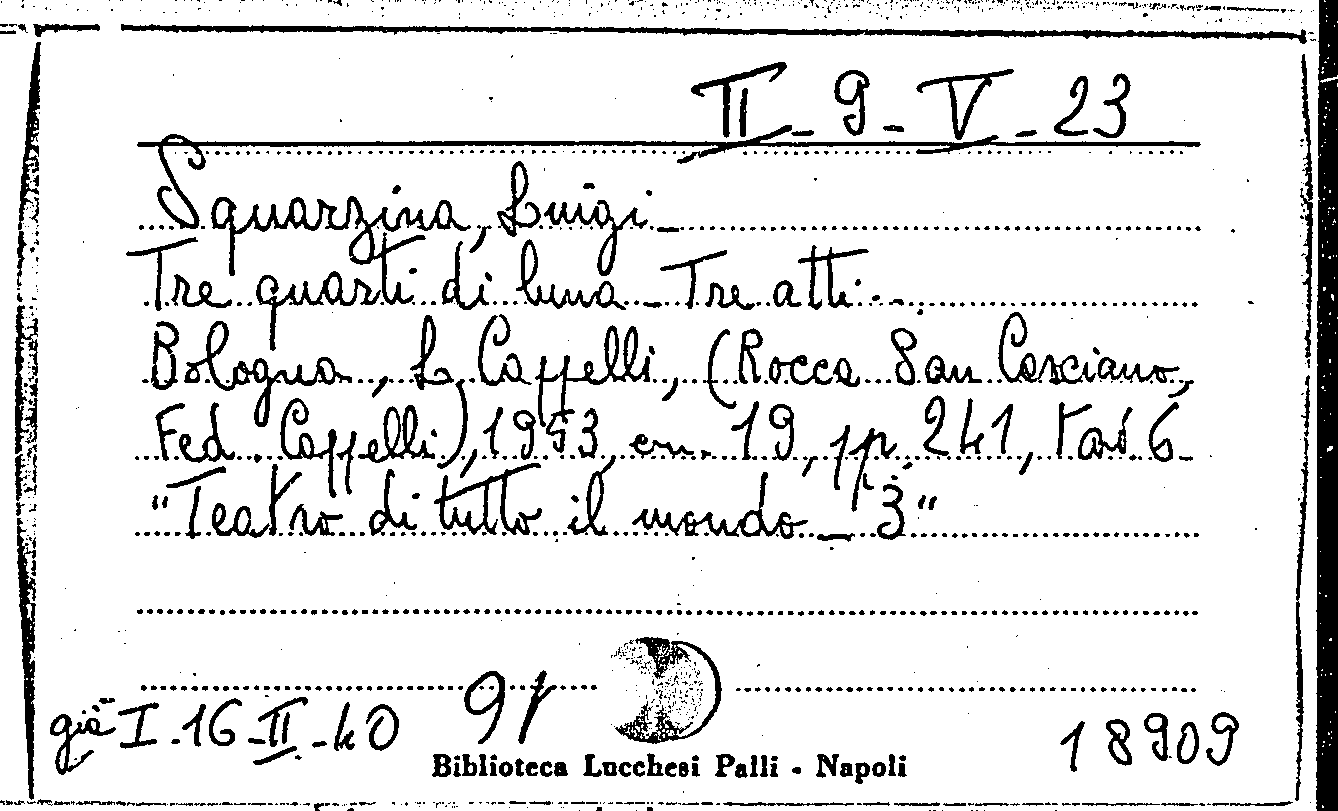 II - 9 - V - 23
Squarzina, Luigi -
Tre quarti di luna - Tre atti. -
Bologna, L. Cappelli, (Rocca San Casciano,
Fed. Cappelli), 1953, cm. 19, pp. 241, tav. 6 -
"Teatro di tutto il mondo - 3"
già I - 16 - II - 40 91 18909
Biblioteca Lucchesi Palli - Napoli